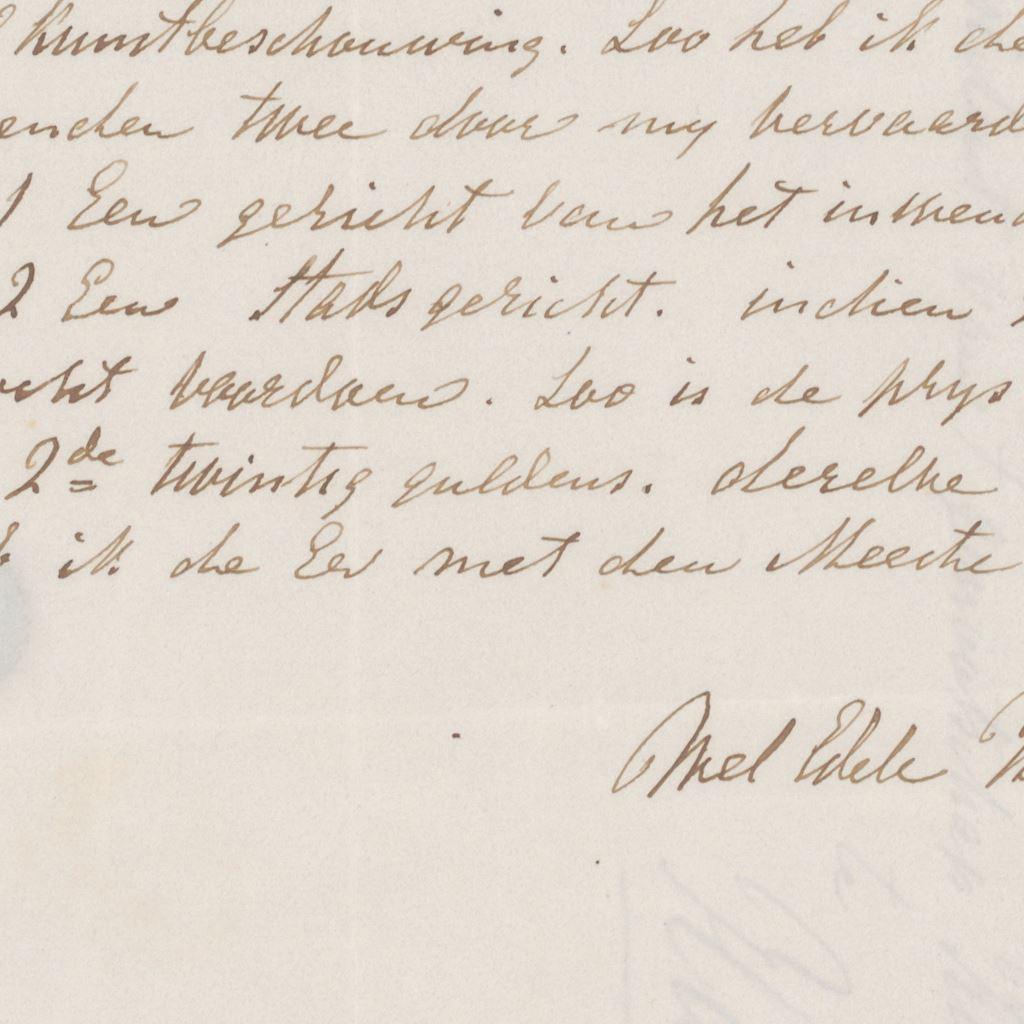 Kunstbeschouwing. Zoo heb ik de
enden twee door my vervaard
1 Een gezicht van het inwend
2 Een Stads gezicht. indien
cht voordoen. Zoo is de prys
2de twintig guldens. dezelve
ik de Eer met den Meeste
Wel Edele